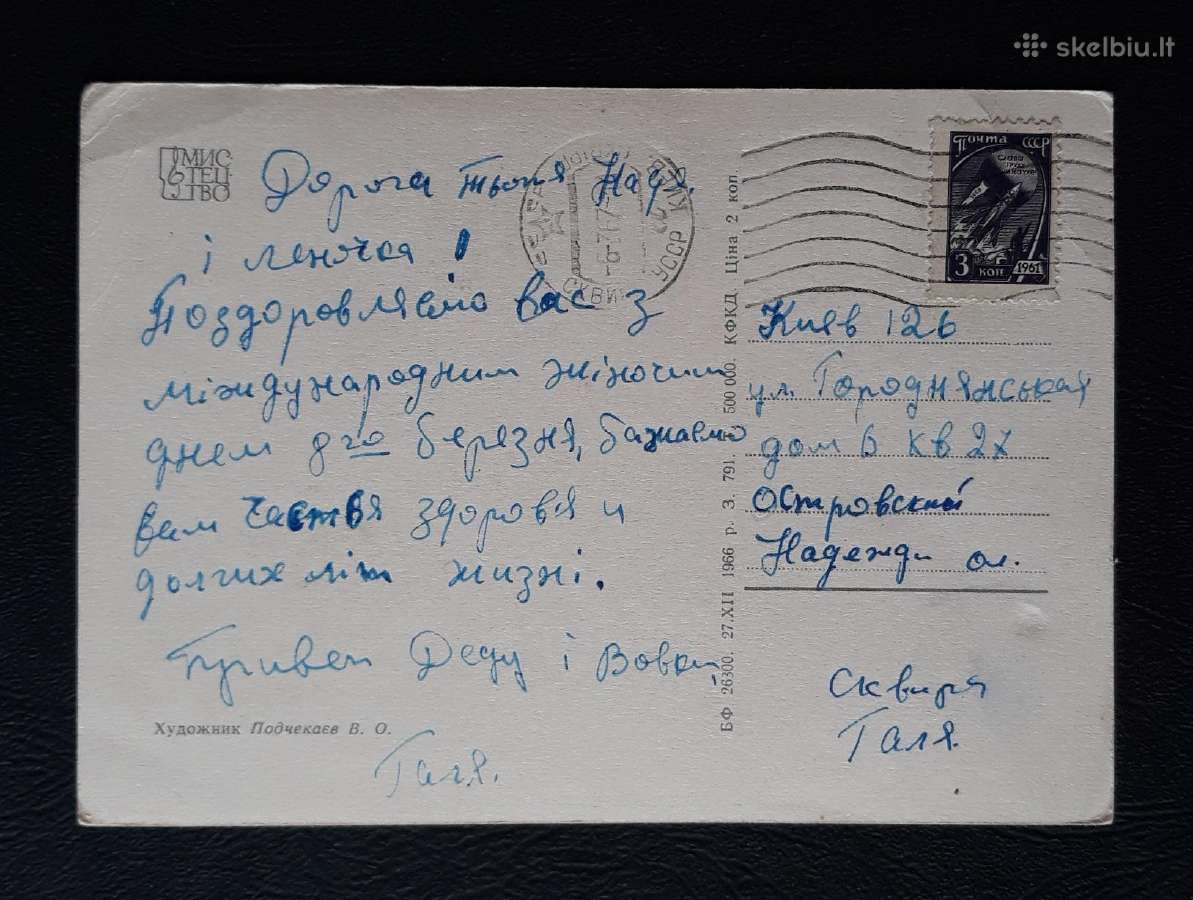 skelbiu.lt
МИС
ТЕЦ
ТВО
Дорога тьотя Надя.
і Леночка!
Поздоровляємо Вас з
міждународним жіночим
днем 8го березня, бажаємо
вам частья здоровя и
долгих літ жизні.
Привет Деду і Вовки
Галя.
Художник Подчекаєв В. О.
БФ 26300. 27.XII 1966 р. З. 791. 500 000. КФКД. Ціна 2 коп.
СКВИ
УССР
Почта СССР
СЛАВА
ТРУДУ
НАУКЕ
3 коп 1961
Київ 126
ул. Городнянськая
дом 6 кв 27
Островский
Надежди ол.
Сквиря
Галя.